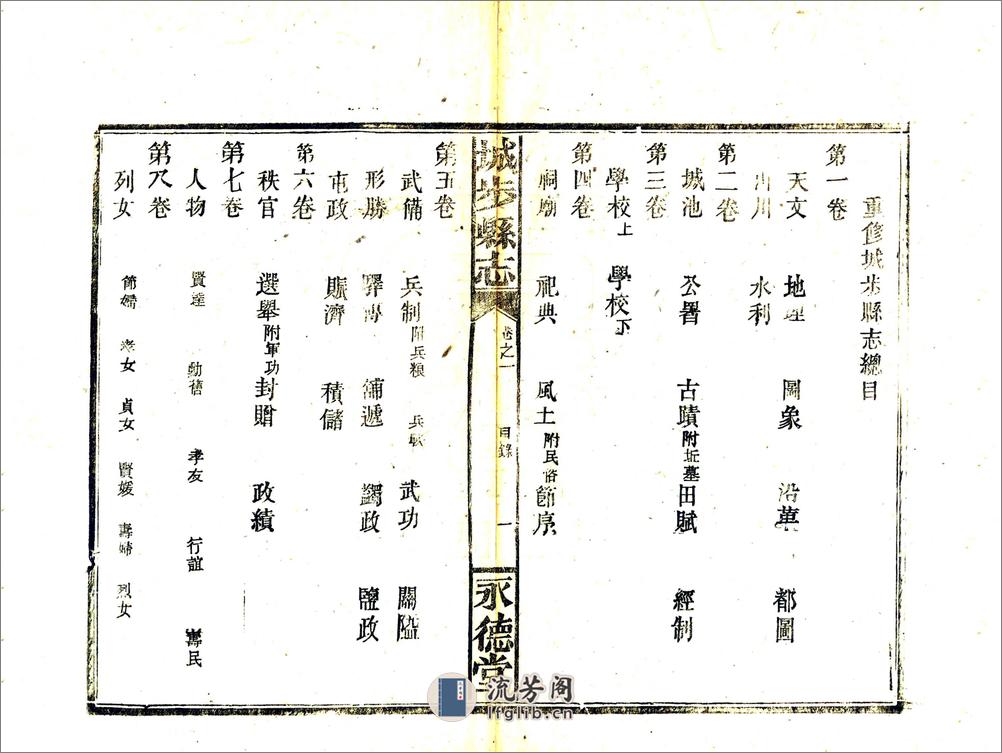 重修城步縣志總目
第一卷
天文 地理 圖象 沿革 都圖
山川 水利
第二卷
城池 公署 古蹟附坵墓 田賦 經制
第三卷
學校上 學校下
第四卷
祠廟 祀典 風土附民俗 節序
城步縣志 卷之一 目錄 一 永德堂
第五卷
武備 兵制附兵糧 兵 武功 關隘
形勝 驛傳 鋪遞 蠲政 鹽政
屯政 賑濟 積儲
第六卷
秩官 選舉附軍功 封贈 政績
第七卷
人物 賢達 勳舊 孝友 行誼 壽民
第八卷
列女 節婦 孝女 貞女 賢媛 壽婦 烈女
流芳阁
lfglib.cn